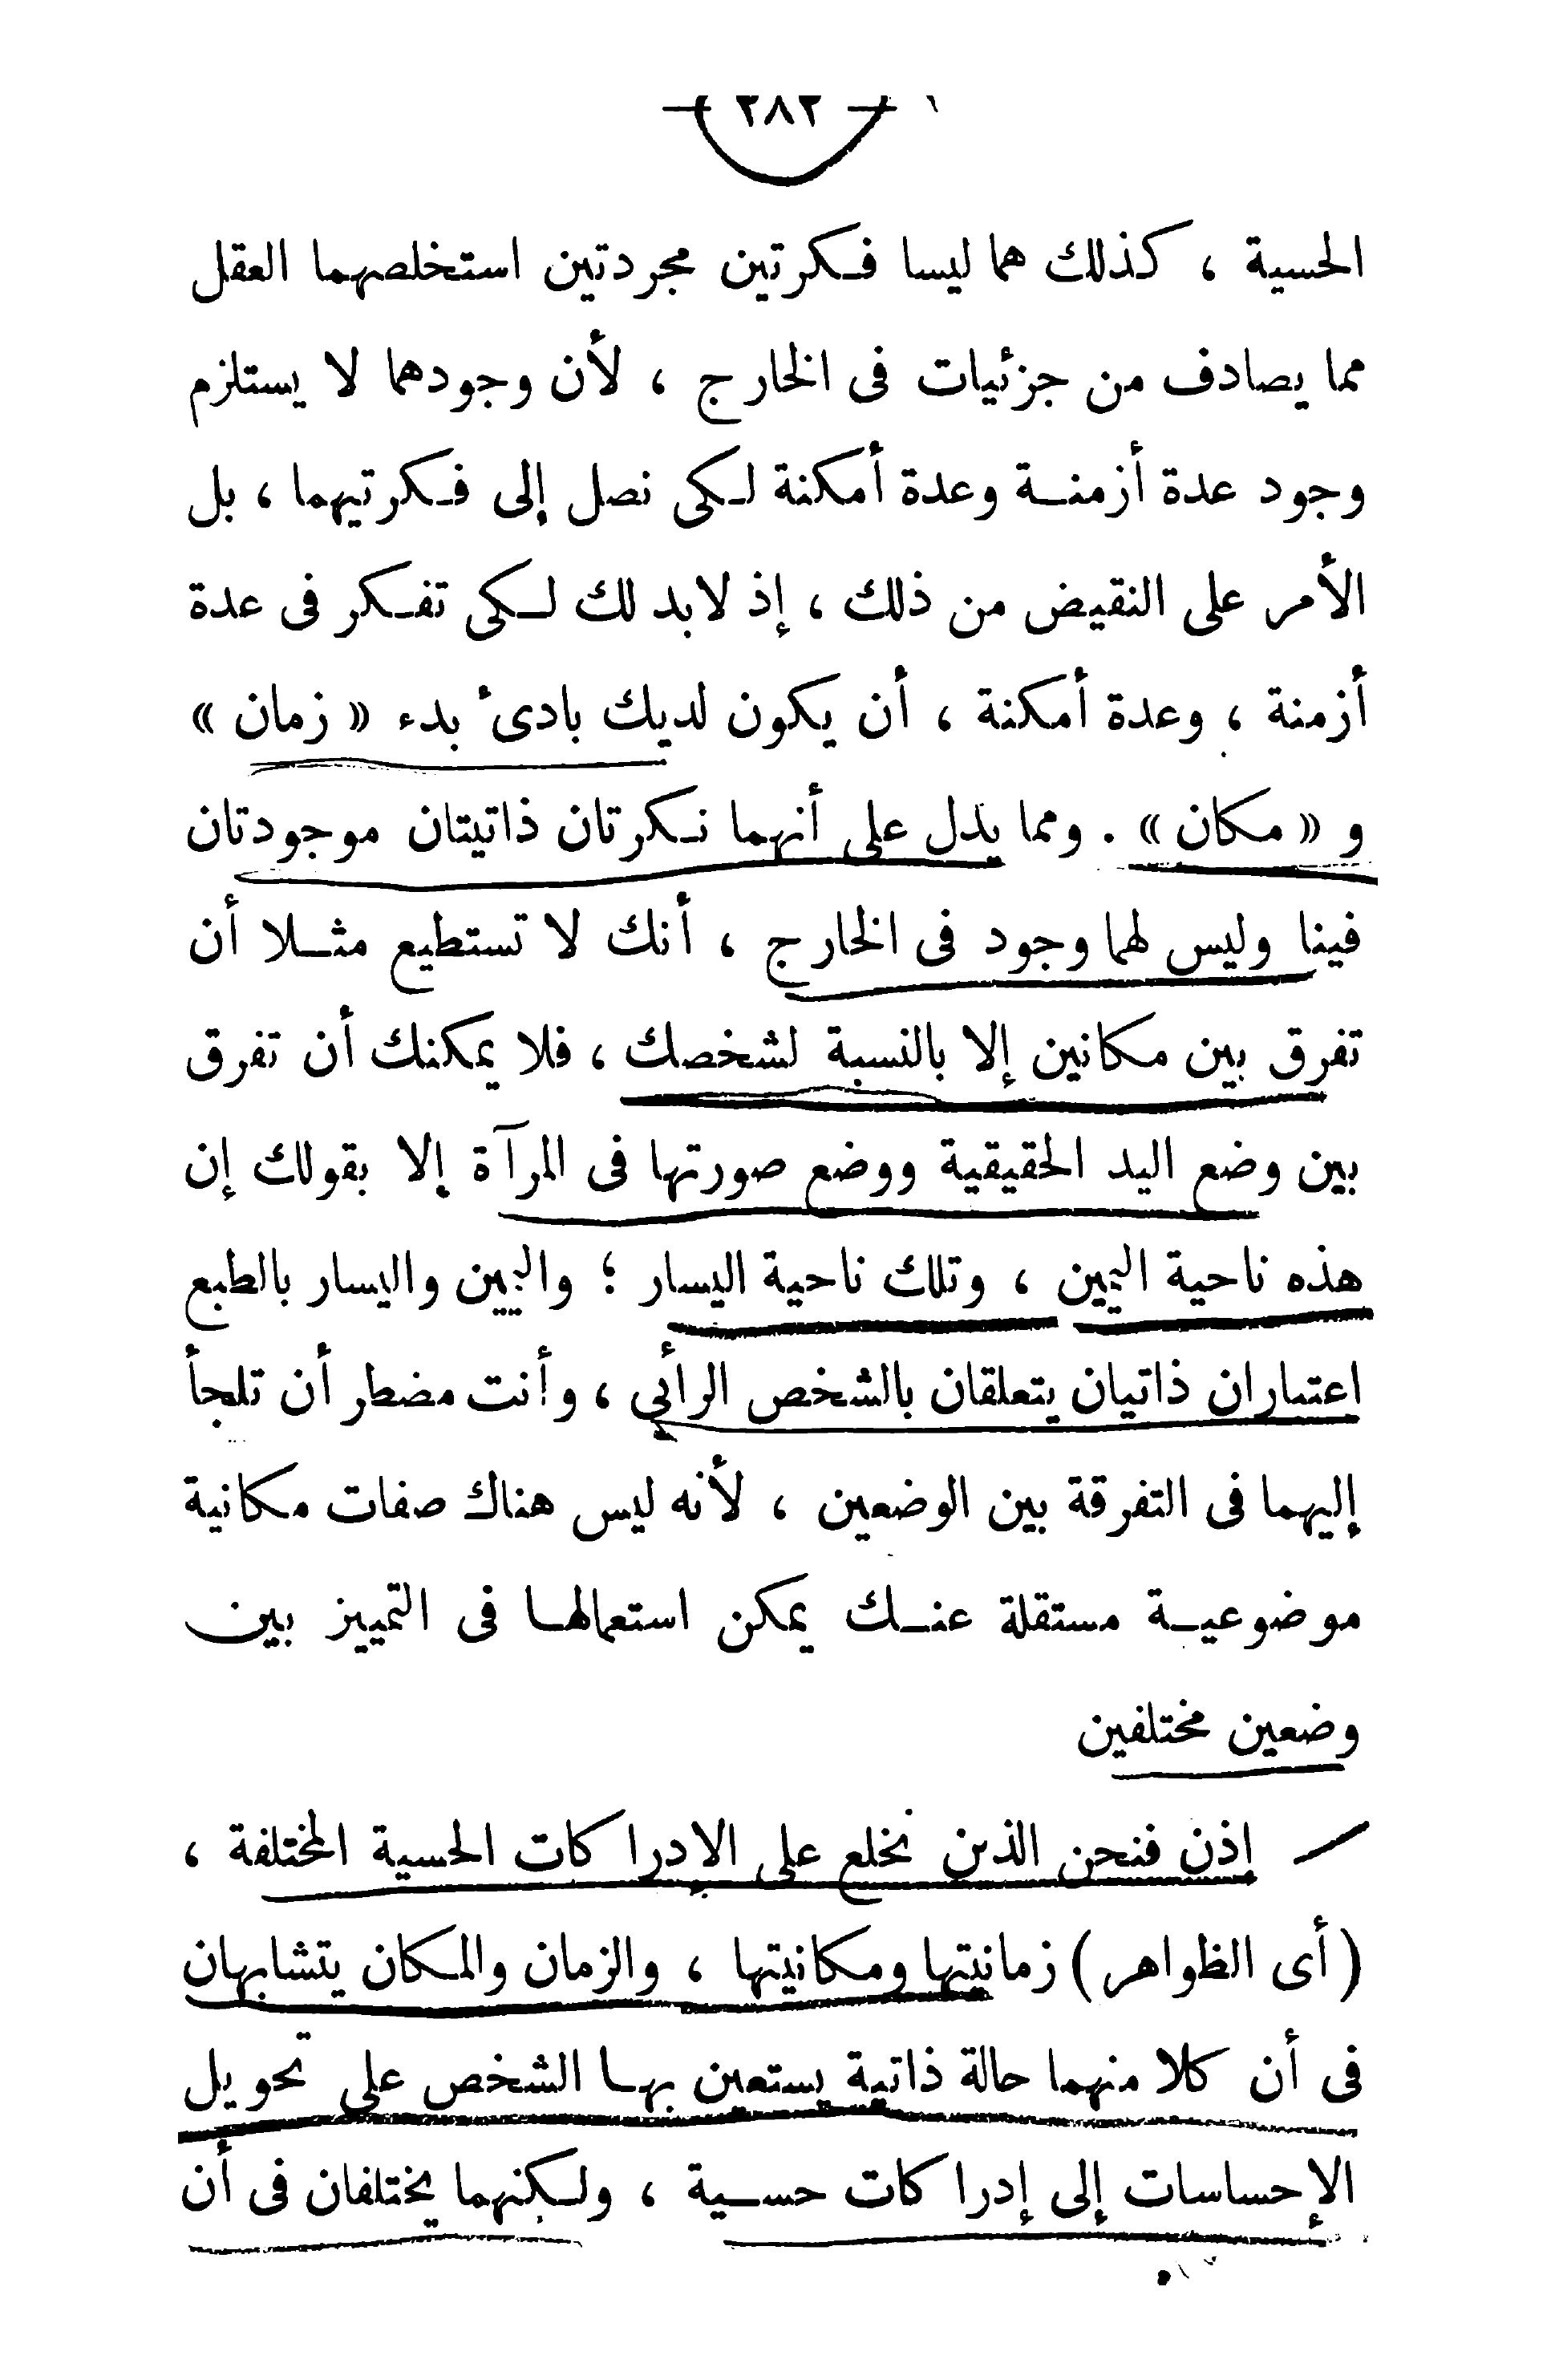 — ٢٨٢ —
الحسية ، كذلك هما ليسا فكرتين مجردتين استخلصهما العقل
مما يصادف من جزئيات فى الخارج ، لأن وجودهما لا يستلزم
وجود عدة أزمنة وعدة أمكنة لكى نصل إلى فكرتيهما ، بل
الأمر على النقيض من ذلك ، إذ لابد لك لكى تفكر فى عدة
أزمنة ، وعدة أمكنة ، أن يكون لديك بادئ بدء « زمان »
و « مكان » . ومما يدل على أنهما نكرتان ذاتيتان موجودتان
فينا وليس لهما وجود فى الخارج ، أنك لا تستطيع مثلا أن
تفرق بين مكانين إلا بالنسبة لشخصك ، فلا يمكنك أن تفرق
بين وضع اليد الحقيقية ووضع صورتها فى المرآة إلا بقولك إن
هذه ناحية اليمين ، وتلك ناحية اليسار ؛ واليمين واليسار بالطبع
اعتباران ذاتيان يتعلقان بالشخص الرأبى ، وأنت مضطر أن تلجأ
إليهما فى التفرقة بين الوضعين ، لأنه ليس هناك صفات مكانية
موضوعية مستقلة عنك يمكن استعمالها فى التمييز بين
وضعين مختلفين
إذن فنحن الذين نخلع على الإدراكات الحسية المختلفة ،
( أى الظواهر ) زمانيتها ومكانيتها ، والزمان والمكان يتشابهان
فى أن كلا منهما حالة ذاتية يستعين بها الشخص على تحويل
الإحساسات إلى إدراكات حسية ، ولكنهما يختلفان فى أن